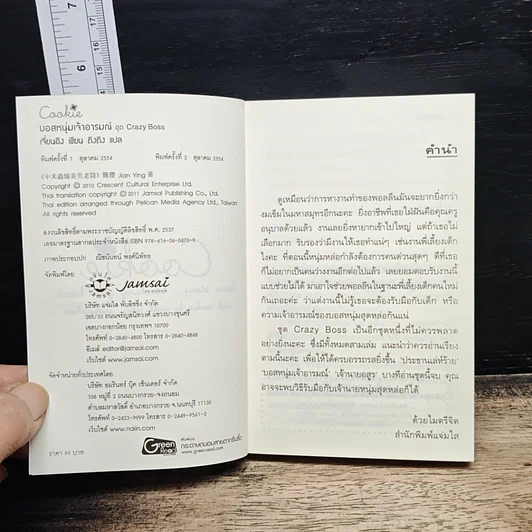 Cookie
บอสหนุ่มเจ้าอารมณ์ ชุด Crazy Boss
เจี่ยนอิง เขียน ถิงถิง แปล
พิมพ์ครั้งที่ 1 ตุลาคม 2554 พิมพ์ครั้งที่ 2 ตุลาคม 2554
Jian Ying 著
Copyright © 2010 Crescent Cultural Enterprise Ltd.
Thai translation copyright © 2011 Jamsai Publishing Co., Ltd.
Thai edition arranged through Pelican Media Agency Ltd., Taiwan
All rights reserved
สงวนลิขสิทธิ์ตามพระราชบัญญัติลิขสิทธิ์ พ.ศ. 2537
เลขมาตรฐานสากลประจำหนังสือ ISBN 978-616-06-0470-9
ภาพประกอบปก
จัดพิมพ์โดย
Jamsai
บริษัท แจ่มใส พับลิชชิ่ง จำกัด
285/33 ถนนจรัญสนิทวงศ์ แขวงบางขุนศรี
เขตบางกอกน้อย กรุงเทพฯ 10700
โทรศัพท์ 0-2840-4800 โทรสาร 0-2840-4848
อีเมล editor@jamsai.com
เว็บไซต์ www.jamsai.com
จัดจำหน่ายทั่วประเทศโดย
บริษัท อมรินทร์ บุ๊ค เซ็นเตอร์ จำกัด
108 หมู่ที่ 2 ถนนบางกรวย-จงถนอม
ตำบลมหาสวัสดิ์ อำเภอบางกรวย จ.นนทบุรี 11130
โทรศัพท์ 0-2423-9999 โทรสาร 0-2449-9561-3
เว็บไซต์ www.naiin.com
ราคา 99 บาท
Green Read
กระดาษถนอมสายตากรีนรี้ด
www.greenread.com
คำนำ
ดูเหมือนว่าการหางานทำของพอลลีนมันจะยากยิ่งกว่า
งมเข็มในมหาสมุทรอีกนะคะ ยิ่งอาชีพที่เธอใฝ่ฝันคือคุณครู
อนุบาลด้วยแล้ว งานเลยยิ่งหายากเข้าไปใหญ่ แต่ถ้าเธอไม่
เลือกมาก รับรองว่ามีงานให้เธอทำแน่ๆ เช่นงานพี่เลี้ยงเด็ก
ไงคะ ที่ตอนนี้หนุ่มหล่อกำลังต้องการคนด่วนสุดๆ ดีที่เธอ
ก็ไม่อยากเป็นคนว่างงานอีกต่อไปแล้ว เลยยอมตอบรับงานนี้
แบบช่วยไม่ได้ มาเอาใจช่วยพอลลีนในฐานะพี่เลี้ยงเด็กคนใหม่
กันเถอะค่ะ ว่าแต่งานนี้ไม่รู้เธอจะต้องรับมือกับเด็ก หรือ
ความเจ้าอารมณ์ของบอสหนุ่มสุดหล่อกันแน่
ชุด Crazy Boss เป็นอีกชุดหนึ่งที่ไม่ควรพลาด
อย่างยิ่งนะคะ ซึ่งมีทั้งหมดสามเล่ม แนะนำว่าควรอ่านเรียง
ตามนี้นะคะ เพื่อให้ได้ครบอรรถรสยิ่งขึ้น 'ประธานเล่ห์ร้าย'
'บอสหนุ่มเจ้าอารมณ์' 'เจ้านายอสูร' บางทีอ่านชุดนี้จบ คุณ
อาจจะพบวิธีรับมือกับเจ้านายหนุ่มสุดหล่อก็ได้
ด้วยไมตรีจิต
สำนักพิมพ์แจ่มใส